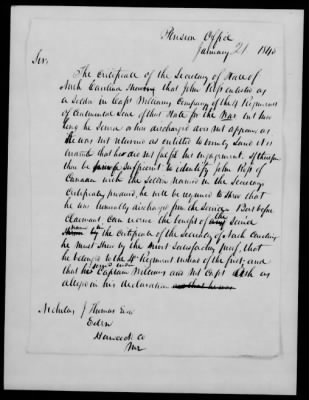 Pension Office
January 21 1845
Sir,
The Certificate of the Secretary of State of
North Carolina Showing that John Rop enlisted as
a Soldier in Capt Williams Company of the 4 Regiment
of Continental Line of this State for the War but how
long he Served or his discharged does not appear, as
he was not returned as entitled to bounty Land it is
that he did not fulfil his engagement. If therefore
there be sufficient to identify John Rop of
with the Soldier named in the Secretary
Certificate produced, he will be required to Show that
he was honorably discharged from the Service. But before
claimant can receive the benefit of Service
by the Certificate of the Secretary of North Carolina
he must Show by the most Satisfactory proof, that
he belonged to the 4th Regiment instead of the first, and
that he served under Captain Williams and not Capt as
alleged in his declaration
Nicholas J Thomas Esq
Eden
Hancock Co
Me